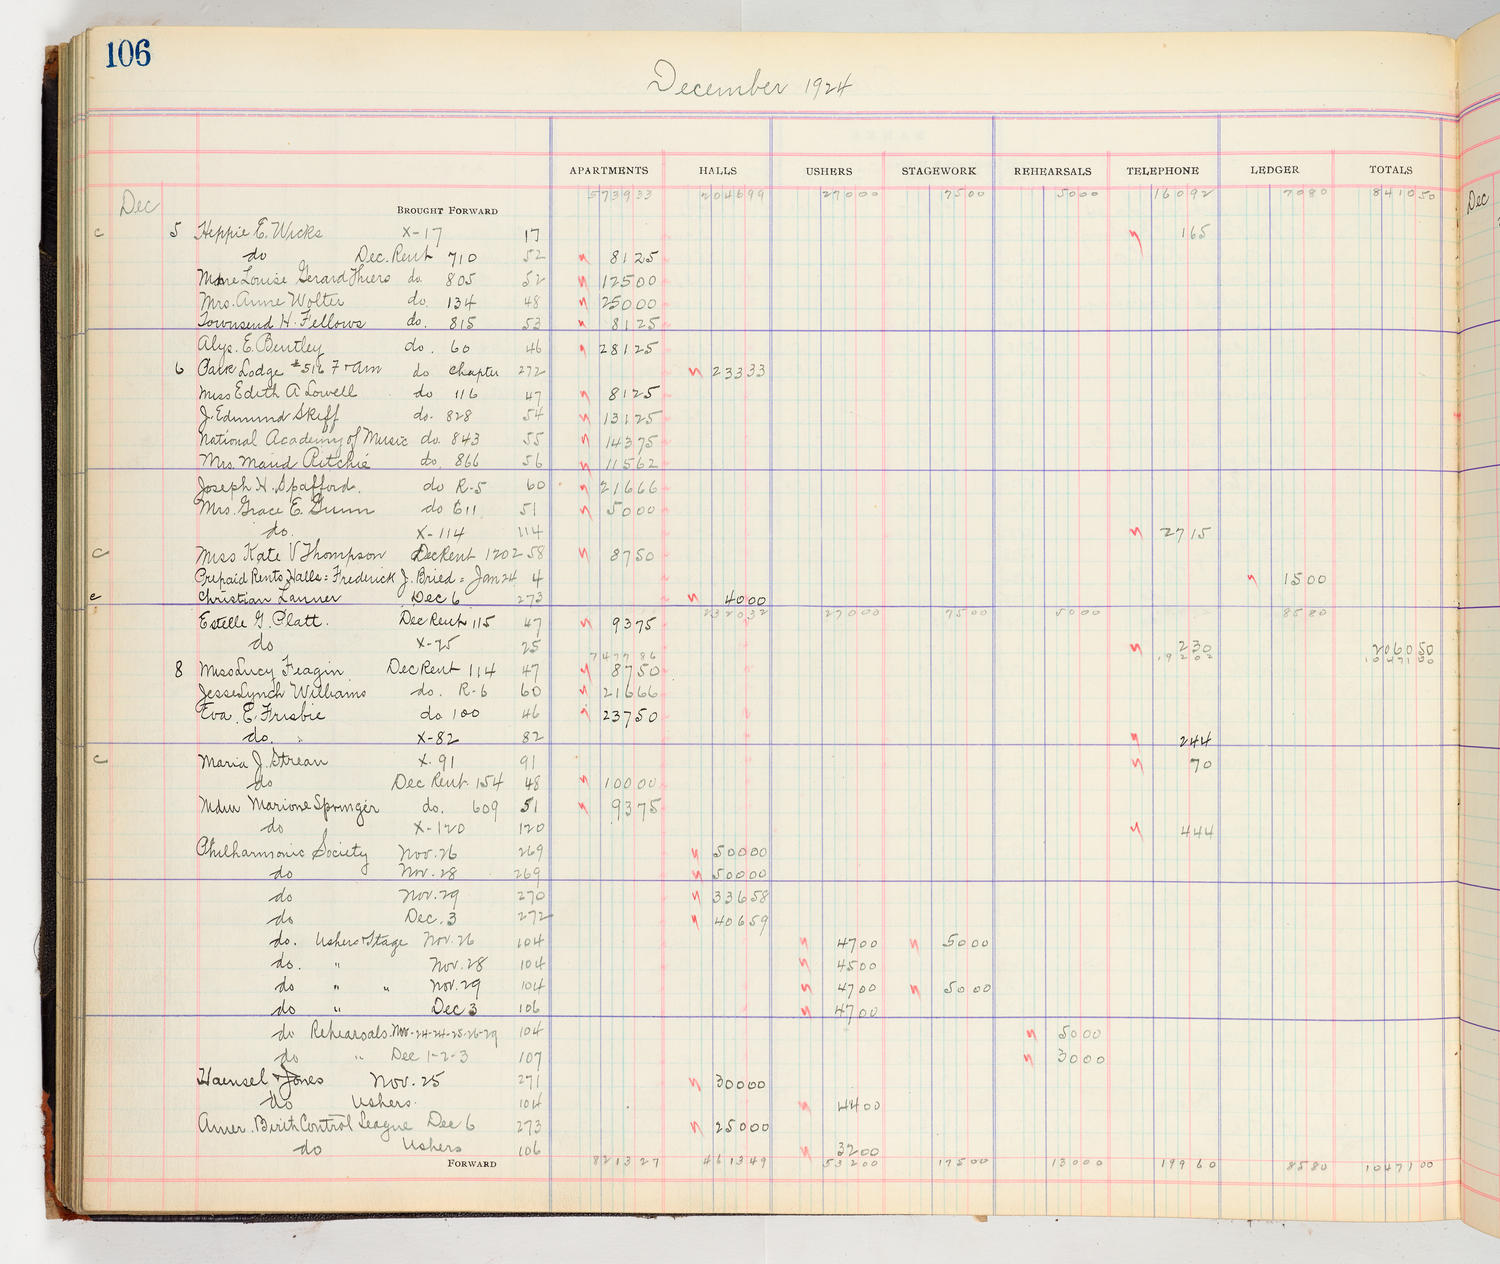 106
December 1924
APARTMENTS HALLS USHERS STAGEWORK REHEARSALS TELEPHONE LEDGER TOTALS
573933 204699 27000 7500 5000 16092 7080 841050
Dec
BROUGHT FORWARD
c 5 Heppie E. Wicks X-17 17 165
do Dec. Rent 710 52 8125
Mme Louise Gerard Thiers do 805 52 12500
Mrs. Anne Wolter do. 134 48 25000
Townsend H. Fellows do. 815 53 8125
Alys. E. Bentley do. 60 46 28125
6 Park Lodge #516 F+Am do Chapter 272 23333
Miss Edith A Lowell do 116 47 8125
J. Edmund Skiff do. 828 54 13125
National Academy of Music do. 843 55 14375
Mrs. Maud Ritchie do. 866 56 11562
Joseph H. Spafford. do R-5 60 21666
Mrs. Grace E. Gunn do 611 51 5000
do. X-114 114 2715
c Miss Kate V Thompson Dec Rent 1202 58 8750
Prepaid Rents Halls = Frederick J. Bried = Jan 24 4 1500
c Christian Lanner Dec 6 273 4000
232032 27000 7500 5000 8580
Estelle G. Platt. Dec Rent 115 47 9375
do X-25 25 230
747786 19202
8 Miss Lucy Feagin Dec Rent 114 47 8750
Jesse Lynch Williams do. R-6 60 21666
Eva. E. Frisbie do 100 46 23750
do. X-82 82 244
c Maria J. Strean X-91 91 70
do Dec Rent 154 48 10000
Marione Springer do. 609 51 9375
do X-120 120 444
Philharmonic Society Nov. 26 269 50000
do Nov. 28 269 50000
do Nov. 29 270 33658
do Dec. 3 272 40659
do. Ushers + Stage Nov. 26 104 4700 5000
do. " Nov. 28 104 4500
do " " Nov. 29 104 4700 5000
do " Dec 3 106 4700
do Rehearsals. Nov-24-24-25-26-29 104 5000
do " Dec 1-2-3 107 3000
Haensel + Jones Nov. 25 271 30000
do Ushers. 104 4400
Amer. Birth Control League Dec 6 273 25000
do Ushers 106 3200
FORWARD 821327 461349 53200 17500 13000 19960 8580
Dec